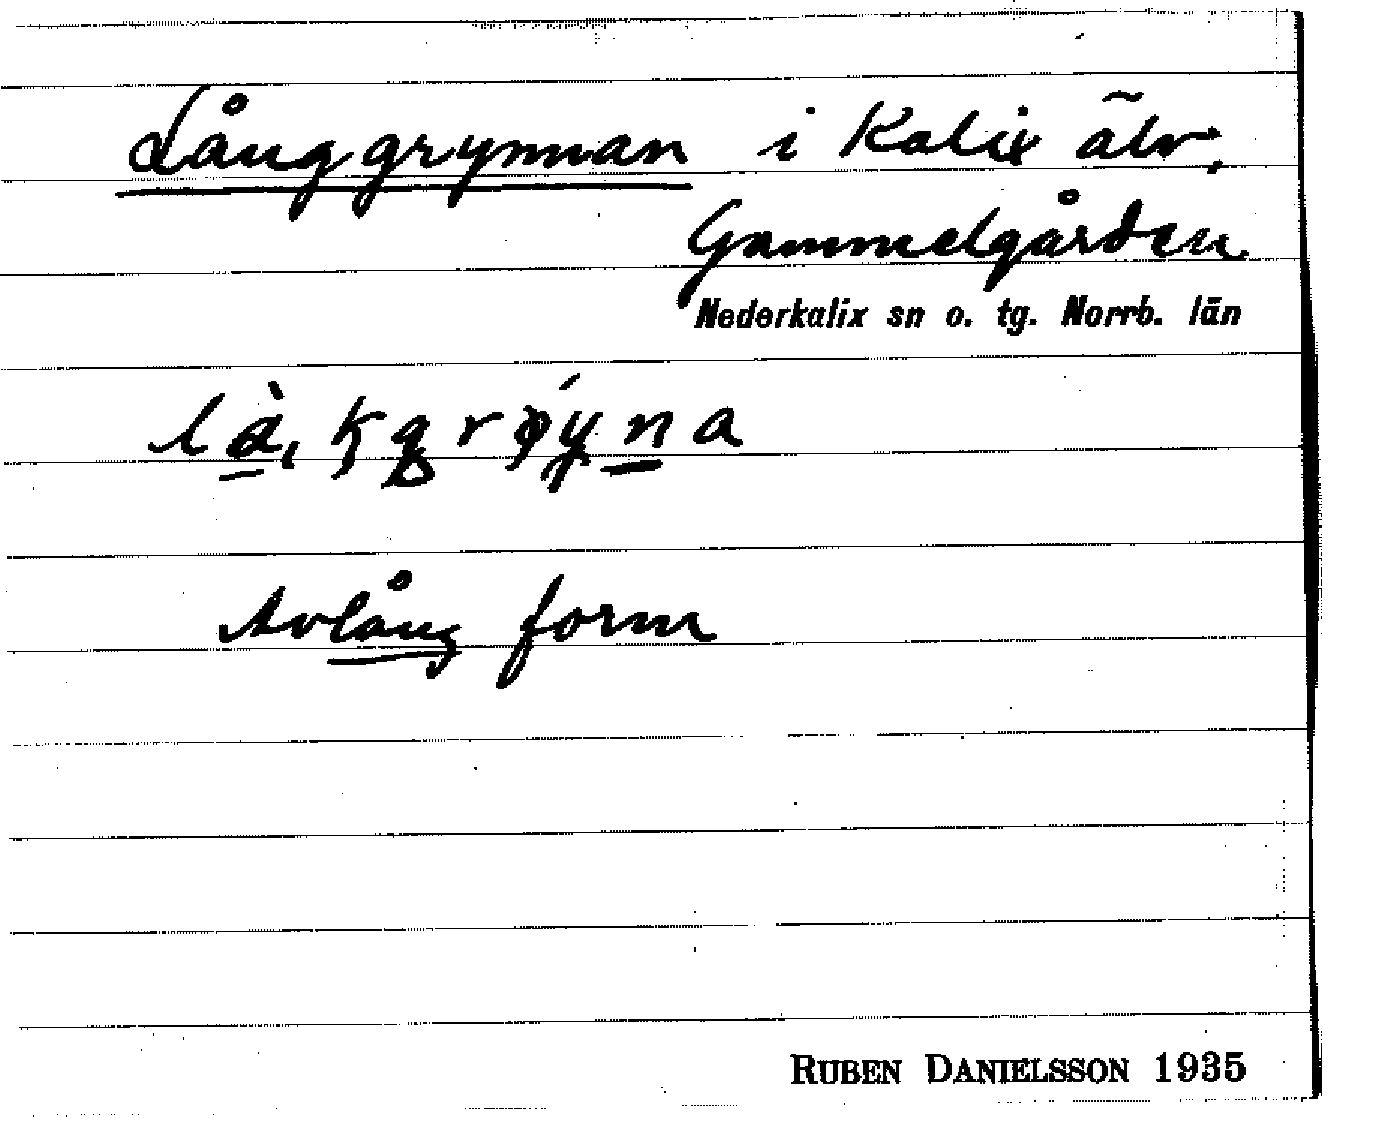 Långgrynnan i Kalix älv,
Gammelgården
Nederkalix sn o. tg. Norrb. län
Avlång form
RUBEN DANIELSSON 1935